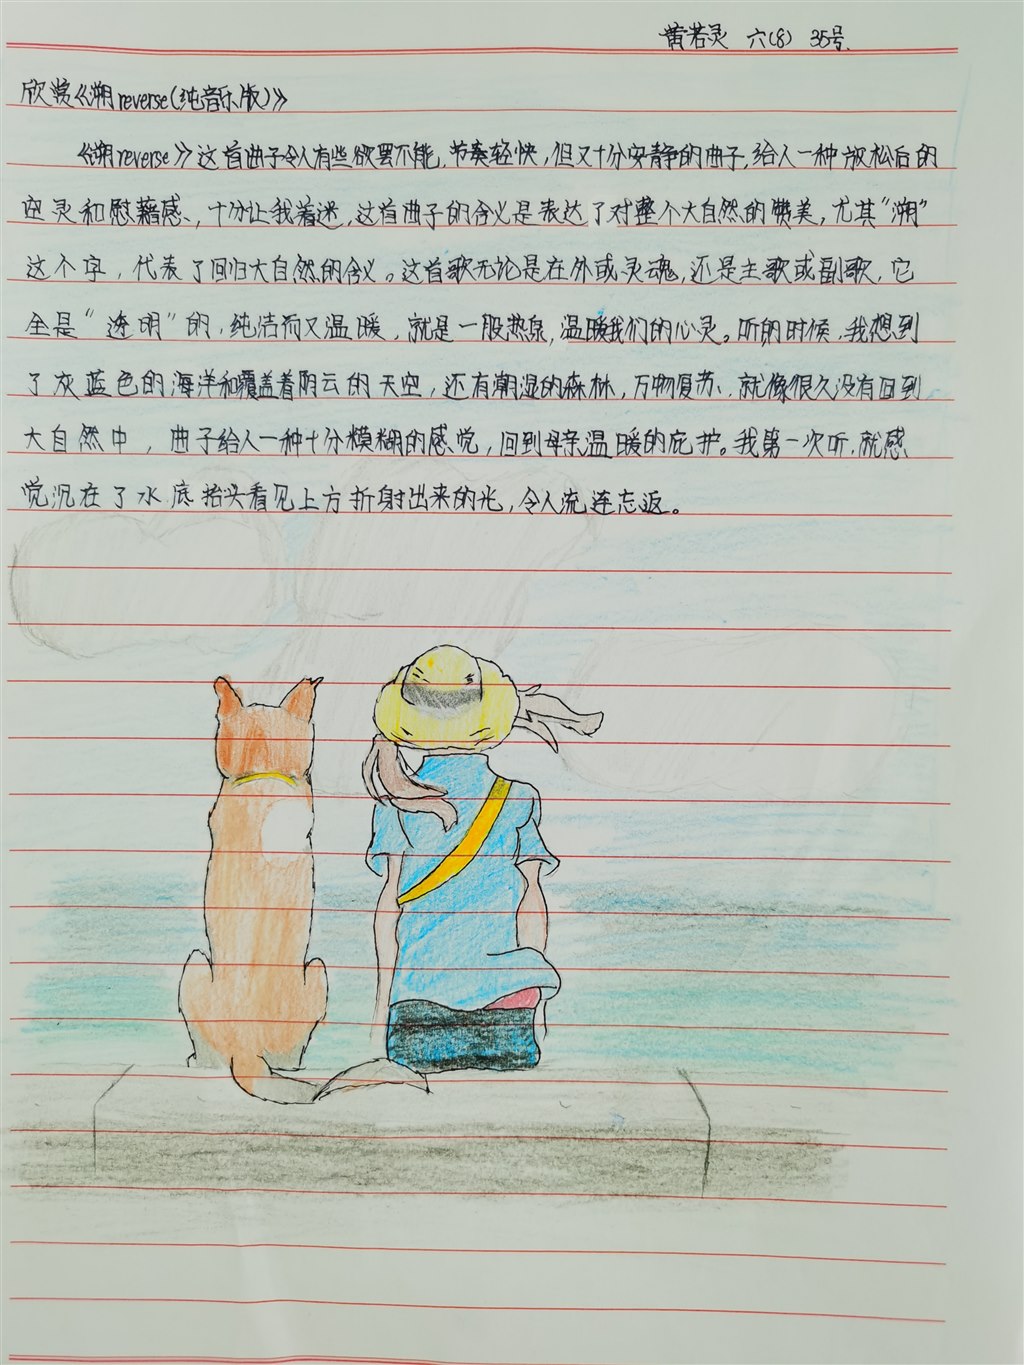 黄若灵 六(8) 35号.
欣赏《溯reverse(纯音乐版)》
《溯reverse》这首曲子令人有些欲罢不能,节奏轻快,但又十分安静的曲子,给人一种放松后的
空灵和慰藉感,十分让我着迷,这首曲子的含义是表达了对整个大自然的赞美,尤其“溯”
这个字,代表了回归大自然的含义。这首歌无论是在外或灵魂,还是主歌或副歌,它
全是“透明”的,纯洁而又温暖,就是一股热泉,温暖我们的心灵。听的时候,我想到
了灰蓝色的海洋和覆盖着阴云的天空,还有潮湿的森林,万物复苏,就像很久没有回到
大自然中,曲子给人一种十分模糊的感觉,回到母亲温暖的庇护。我第一次听,就感
觉沉在了水底抬头看见上方折射出来的光,令人流连忘返。